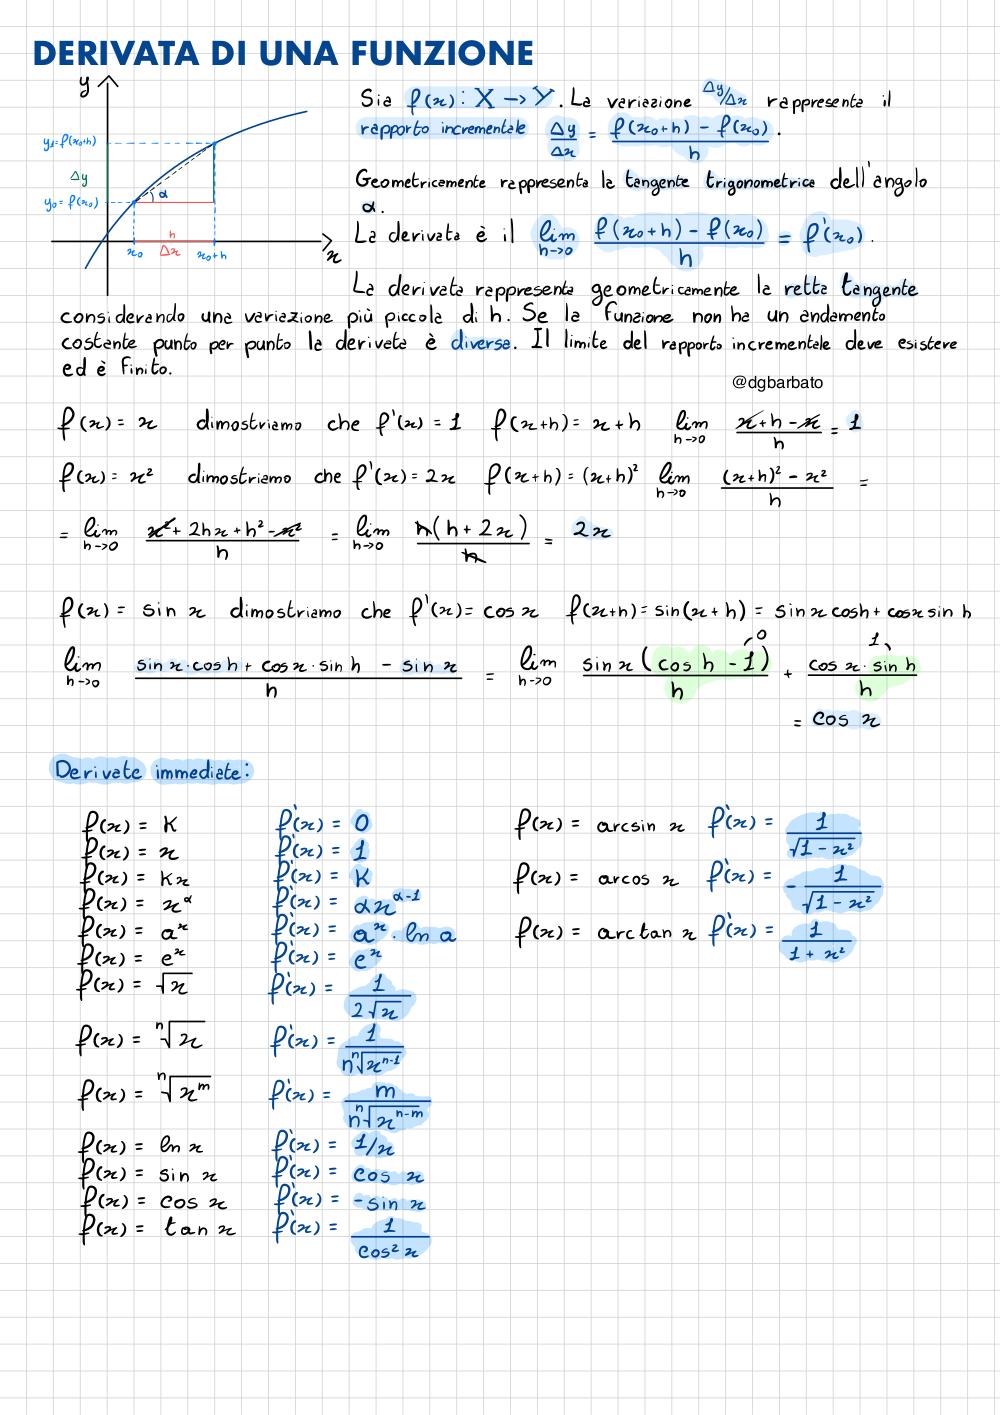 DERIVATA DI UNA FUNZIONE
y
y₁=f(x₀+h)
Δy
y₀=f(x₀)
α
h
x₀ Δx x₀+h
x
Sia f(x): X → Y. La variazione Δy/Δx rappresenta il
rapporto incrementale Δy/Δx = (f(x₀+h) - f(x₀))/h .
Geometricamente rappresenta la tangente trigonometrica dell'angolo
α.
La derivata è il lim h→0 (f(x₀+h) - f(x₀))/h = f'(x₀).
La derivata rappresenta geometricamente la retta tangente
considerando una variazione più piccola di h. Se la funzione non ha un andamento
costante punto per punto la derivata è diversa. Il limite del rapporto incrementale deve esistere
ed è finito.
@dgbarbato
f(x) = x dimostriamo che f'(x) = 1 f(x+h) = x+h lim h→0 (x+h-x)/h = 1
f(x) = x² dimostriamo che f'(x) = 2x f(x+h) = (x+h)² lim h→0 ((x+h)² - x²)/h =
= lim h→0 (x²+2hx+h²-x²)/h = lim h→0 h(h+2x)/h = 2x
f(x) = sin x dimostriamo che f'(x) = cos x f(x+h) = sin(x+h) = sin x cosh + cosx sin h
lim h→0 (sin x·cos h + cos x·sin h - sin x)/h = lim h→0 sin x (cos h - 1)/h 0 + cos x · sin h/h 1
= cos x
Derivate immediate:
f(x) = K f'(x) = 0
f(x) = x f'(x) = 1
f(x) = Kx f'(x) = K
f(x) = x^α f'(x) = αx^(α-1)
f(x) = a^x f'(x) = a^x · ln a
f(x) = e^x f'(x) = e^x
f(x) = √x f'(x) = 1/(2√x)
f(x) = ⁿ√x f'(x) = 1/(n ⁿ√x^(n-1))
f(x) = ⁿ√x^m f'(x) = m/(n ⁿ√x^(n-m))
f(x) = ln x f'(x) = 1/x
f(x) = sin x f'(x) = cos x
f(x) = cos x f'(x) = -sin x
f(x) = tan x f'(x) = 1/cos² x
f(x) = arcsin x f'(x) = 1/√(1-x²)
f(x) = arcos x f'(x) = - 1/√(1-x²)
f(x) = arctan x f'(x) = 1/(1+x²)